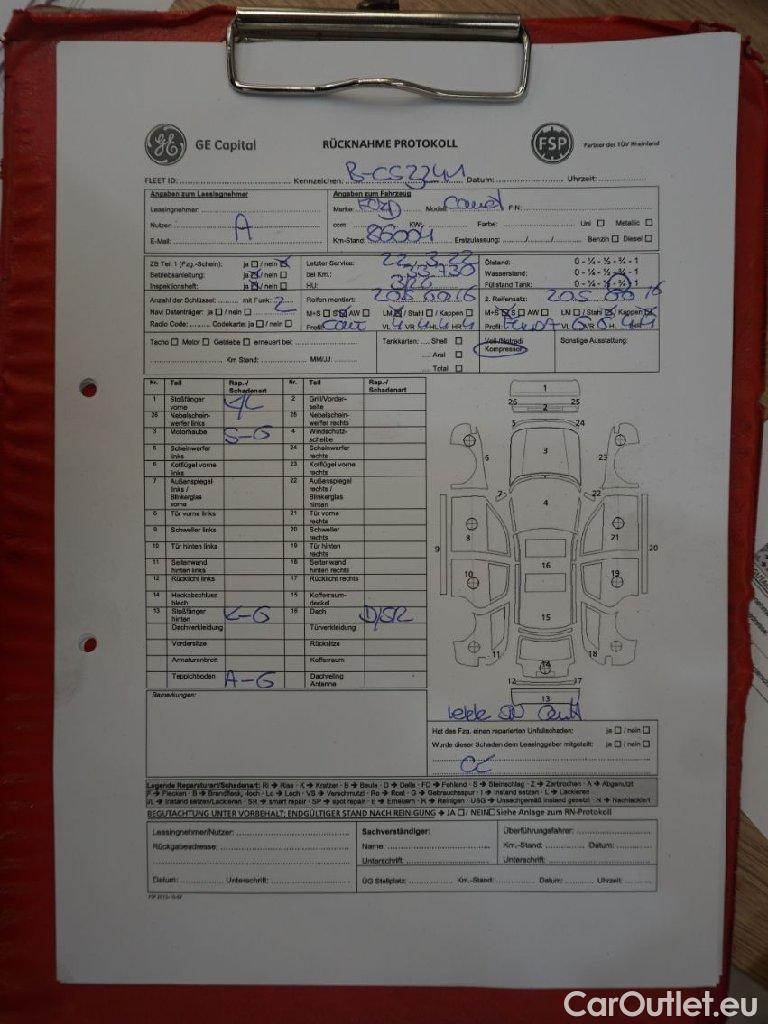 GE Capital
RÜCKNAHME PROTOKOLL
FSP
Partner des TÜV Rheinland
FLEET ID: Kennzeichen: B-CS 2241 Datum: Uhrzeit:
Angaben zum Leasingnehmer
Leasingnehmer:
Nutzer: A
E-Mail:
Angaben zum Fahrzeug
Marke: FORD Modell: FIN:
ccm KW: Farbe: Uni Metallic
Km-Stand: 86004 Erstzulassung: / / Benzin Diesel
ZB Teil 1 (Fzg.-Schein): ja / nein
Betriebsanleitung: ja / nein
Inspektionsheft: ja / nein
Letzter Service: 22.3.22
bei Km.: 33.730
HU: 3/26
Ölstand: 0 - ¼ - ½ - ¾ - 1
Wasserstand: 0 - ¼ - ½ - ¾ - 1
Füllstand Tank: 0 - ¼ - ½ - ¾ - 1
Anzahl der Schlüssel: mit Funk: 2
Navi Datenträger: ja / nein
Radio Code: Codekarte: ja / nein
Reifen montiert: 205 60 16
M+S S AW LM / Stahl / Kappen
Profil: Cont VL 4 VR 4 HL 4 HR 4
2. Reifensatz: 205 60 16
M+S S AW LM / Stahl / Kappen
Profil: VL 6 VR 6 HL 4 HR 4
Tacho Motor Getriebe erneuert bei:
Km Stand: MM/JJ:
Tankkarten: Shell
Aral
Total
Voll-/Notrad/
Kompressor
Sonstige Ausstattung:
Nr. Teil Rep./Schadenart Nr. Teil Rep./Schadenart
1 Stoßfänger vorne K/L 2 Grill/Vorderseite
26 Nebelscheinwerfer links 25 Nebelscheinwerfer rechts
3 Motorhaube S-G 4 Windschutzscheibe
5 Scheinwerfer links 24 Scheinwerfer rechts
6 Kotflügel vorne links 23 Kotflügel vorne rechts
7 Außenspiegel links / Blinkerglas vorne 22 Außenspiegel rechts / Blinkerglas hinten
8 Tür vorne links 21 Tür vorne rechts
9 Schweller links 20 Schweller rechts
10 Tür hinten links 19 Tür hinten rechts
11 Seitenwand hinten links 18 Seitenwand hinten rechts
12 Rücklicht links 17 Rücklicht rechts
14 Heckabschlussblech 15 Kofferraumdeckel
13 Stoßfänger hinten K-G 16 Dach D/SR
Dachverkleidung Türverkleidung
Vordersitze Rücksitze
Armaturenbrett Kofferraum
Teppichboden A-G Dachreling Antenne
Bemerkungen:
1
26 25
2
5 24
6 3 23
7 22
4
9 8 21 20
10 16 19
15
11 14 18
12 17
13
Hat das Fzg. einen reparierten Unfallschaden: ja / nein
Wurde dieser Schaden dem Leasinggeber mitgeteilt: ja / nein
Legende Reparaturart/Schadenart: RI → Riss · K → Kratzer · B → Beule · D → Delle · FC → Fehlend · S → Steinschlag · Z → Zerbrochen · A → Abgenutzt
F → Flecken · B → Brandfleck, -loch · Lo → Loch · VB → Verschmutzt · Ro → Rost · G → Gebrauchsspur · I → Instand setzen · L → Lackieren
I/L → Instand setzen/Lackieren · SR → smart repair · SP → spot repair · E → Erneuern · R → Reinigen · USG → Unsachgemäß instand gesetzt · N → Nachlackiert
BEGUTACHTUNG UNTER VORBEHALT; ENDGÜLTIGER STAND NACH REINIGUNG → JA / NEIN Siehe Anlage zum RN-Protokoll
Leasingnehmer/Nutzer:
Rückgabeadresse:
Datum: Unterschrift:
Sachverständiger:
Name:
Unterschrift
Überführungsfahrer:
Km.-Stand: Datum:
Unterschrift:
ÜG Stellplatz: Km.-Stand: Datum: Uhrzeit:
CarOutlet.eu